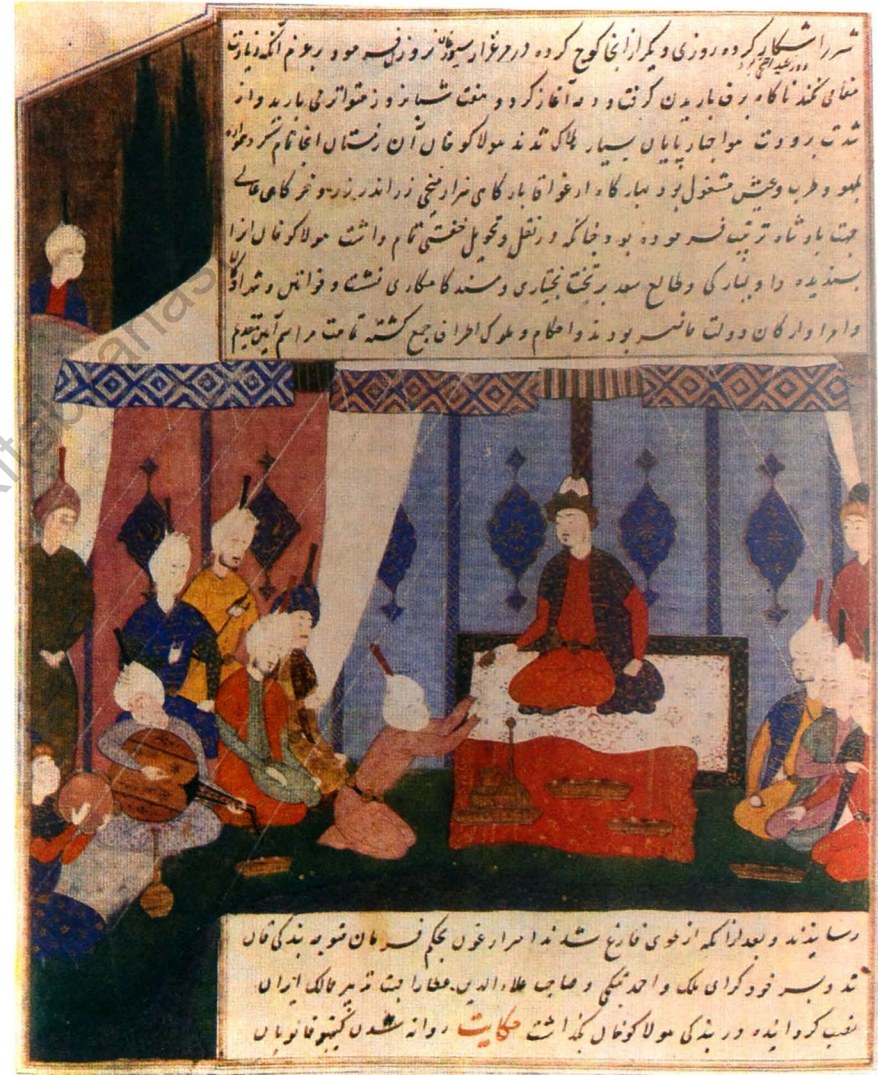 شیر را شکار کرده روزی دیگر از انجا کوچ کرده در مرغزار نزول فرمود و بر عزم آنکه زیارت
روز عید اضحی بود
کنند ناگاه برف باریدن گرفت و دمه آغاز کرد و هفت شبانروز متواتر می بارید و از
شدت برودت هوا چهارپایان بسیار هلاک شدند هولاکو خان آن زمستان انجا مقام
بلهو و طرب و عیش مشغول بود ببارگاه ارغو اقا بارگاهی هزار میخی زر اندر زر و خرگاهی عالی
جهت بادشاه ترتیب فرموده بود چنانکه در نقل و تحویل خفتی تمام داشت هولاکو خان انرا
بسندیده داد و بمبارکی و طالع سعد بر تخت بختیاری و مسند کامکاری نشست و خواتین و شهزادگان
و امرا و ارکان دولت حاضر بودند و حکام و ملوک اطراف جمع کشته تمامت مراسم آیین تقدیم
رسانیدند و بعد از انکه از طوی فارغ شدند امیر ارغون بحکم فرمان متوجه بندکی قاان
شد و بسر خود کرای ملک و احمد بتکجی و صاحب علاءالدین عطارا جهت تدبیر ممالک ایران
نصب کردانیده در بندکی هولاکو خان بگذاشت حکایت روانه شدن کیتبوقا نویان
kitab